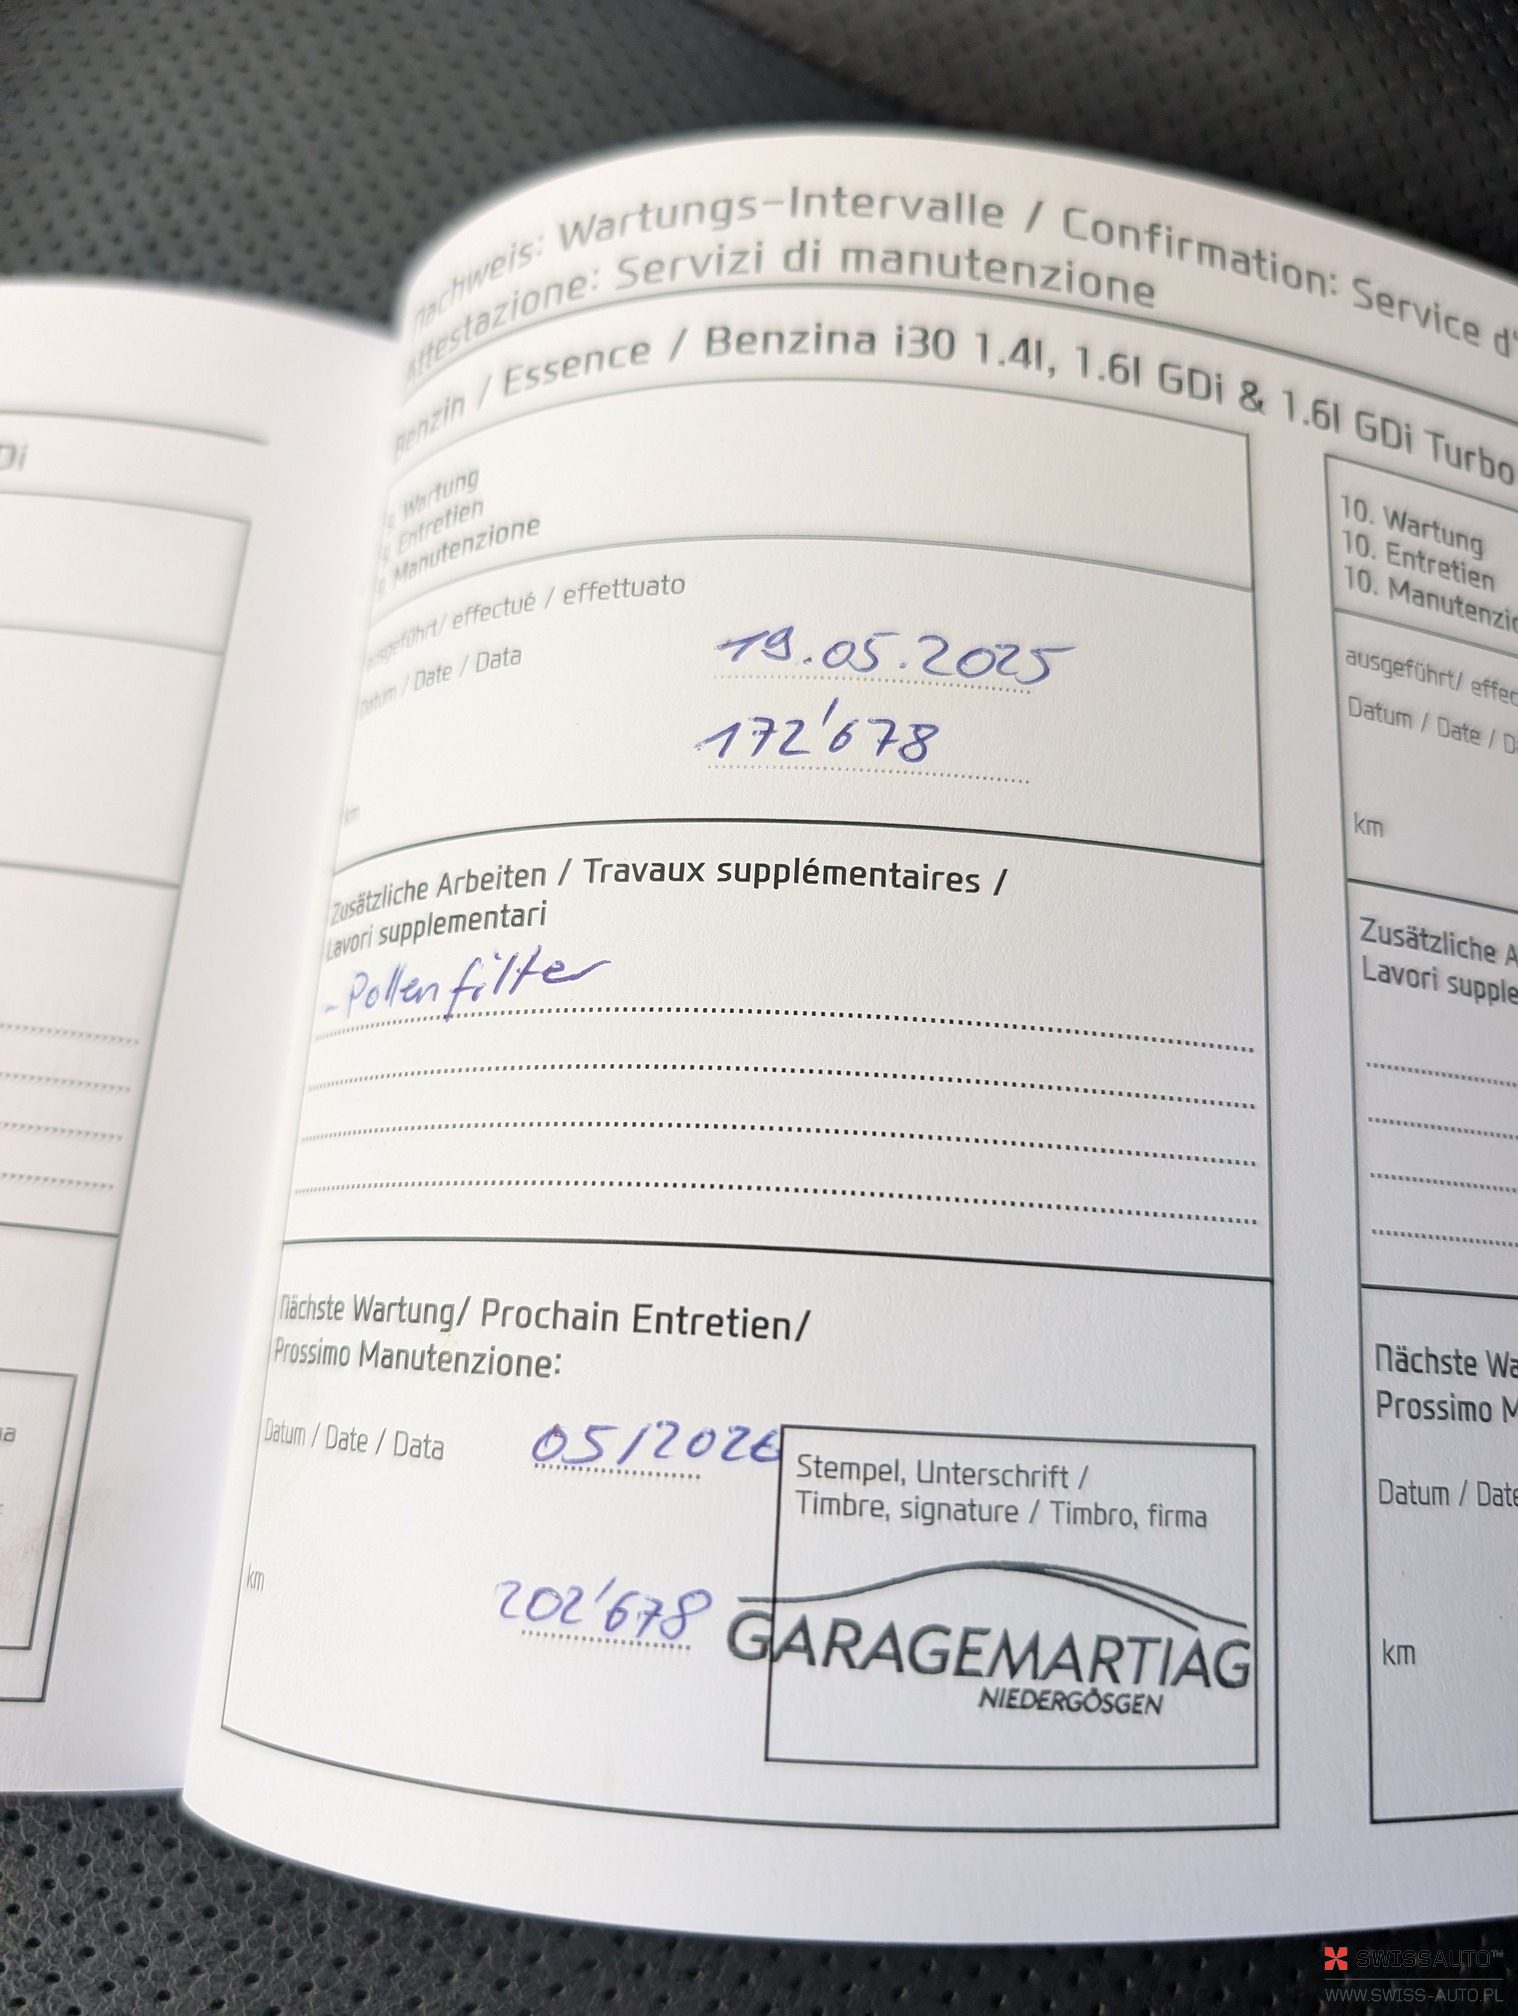 Di
nachweis: Wartungs-Intervalle / Confirmation: Service d'
Attestazione: Servizi di manutenzione
Benzin / Essence / Benzina i30 1.4l, 1.6l GDi & 1.6l GDi Turbo
Wartung
Entretien
Manutenzione
ausgeführt/ effectué / effettuato
Datum / Date / Data
19.05.2025
172'678
km
Zusätzliche Arbeiten / Travaux supplémentaires /
Lavori supplementari
- Pollenfilter
Nächste Wartung/ Prochain Entretien/
Prossimo Manutenzione:
Datum / Date / Data 05/2026
km 202'678
Stempel, Unterschrift /
Timbre, signature / Timbro, firma
GARAGEMARTIAG
NIEDERGÖSGEN
10. Wartung
10. Entretien
10. Manutenzio
ausgeführt/ effec
Datum / Date / Da
km
Zusätzliche A
Lavori supple
Nächste Wa
Prossimo M
Datum / Date
km
SWISSAUTO™
WWW.SWISS-AUTO.PL